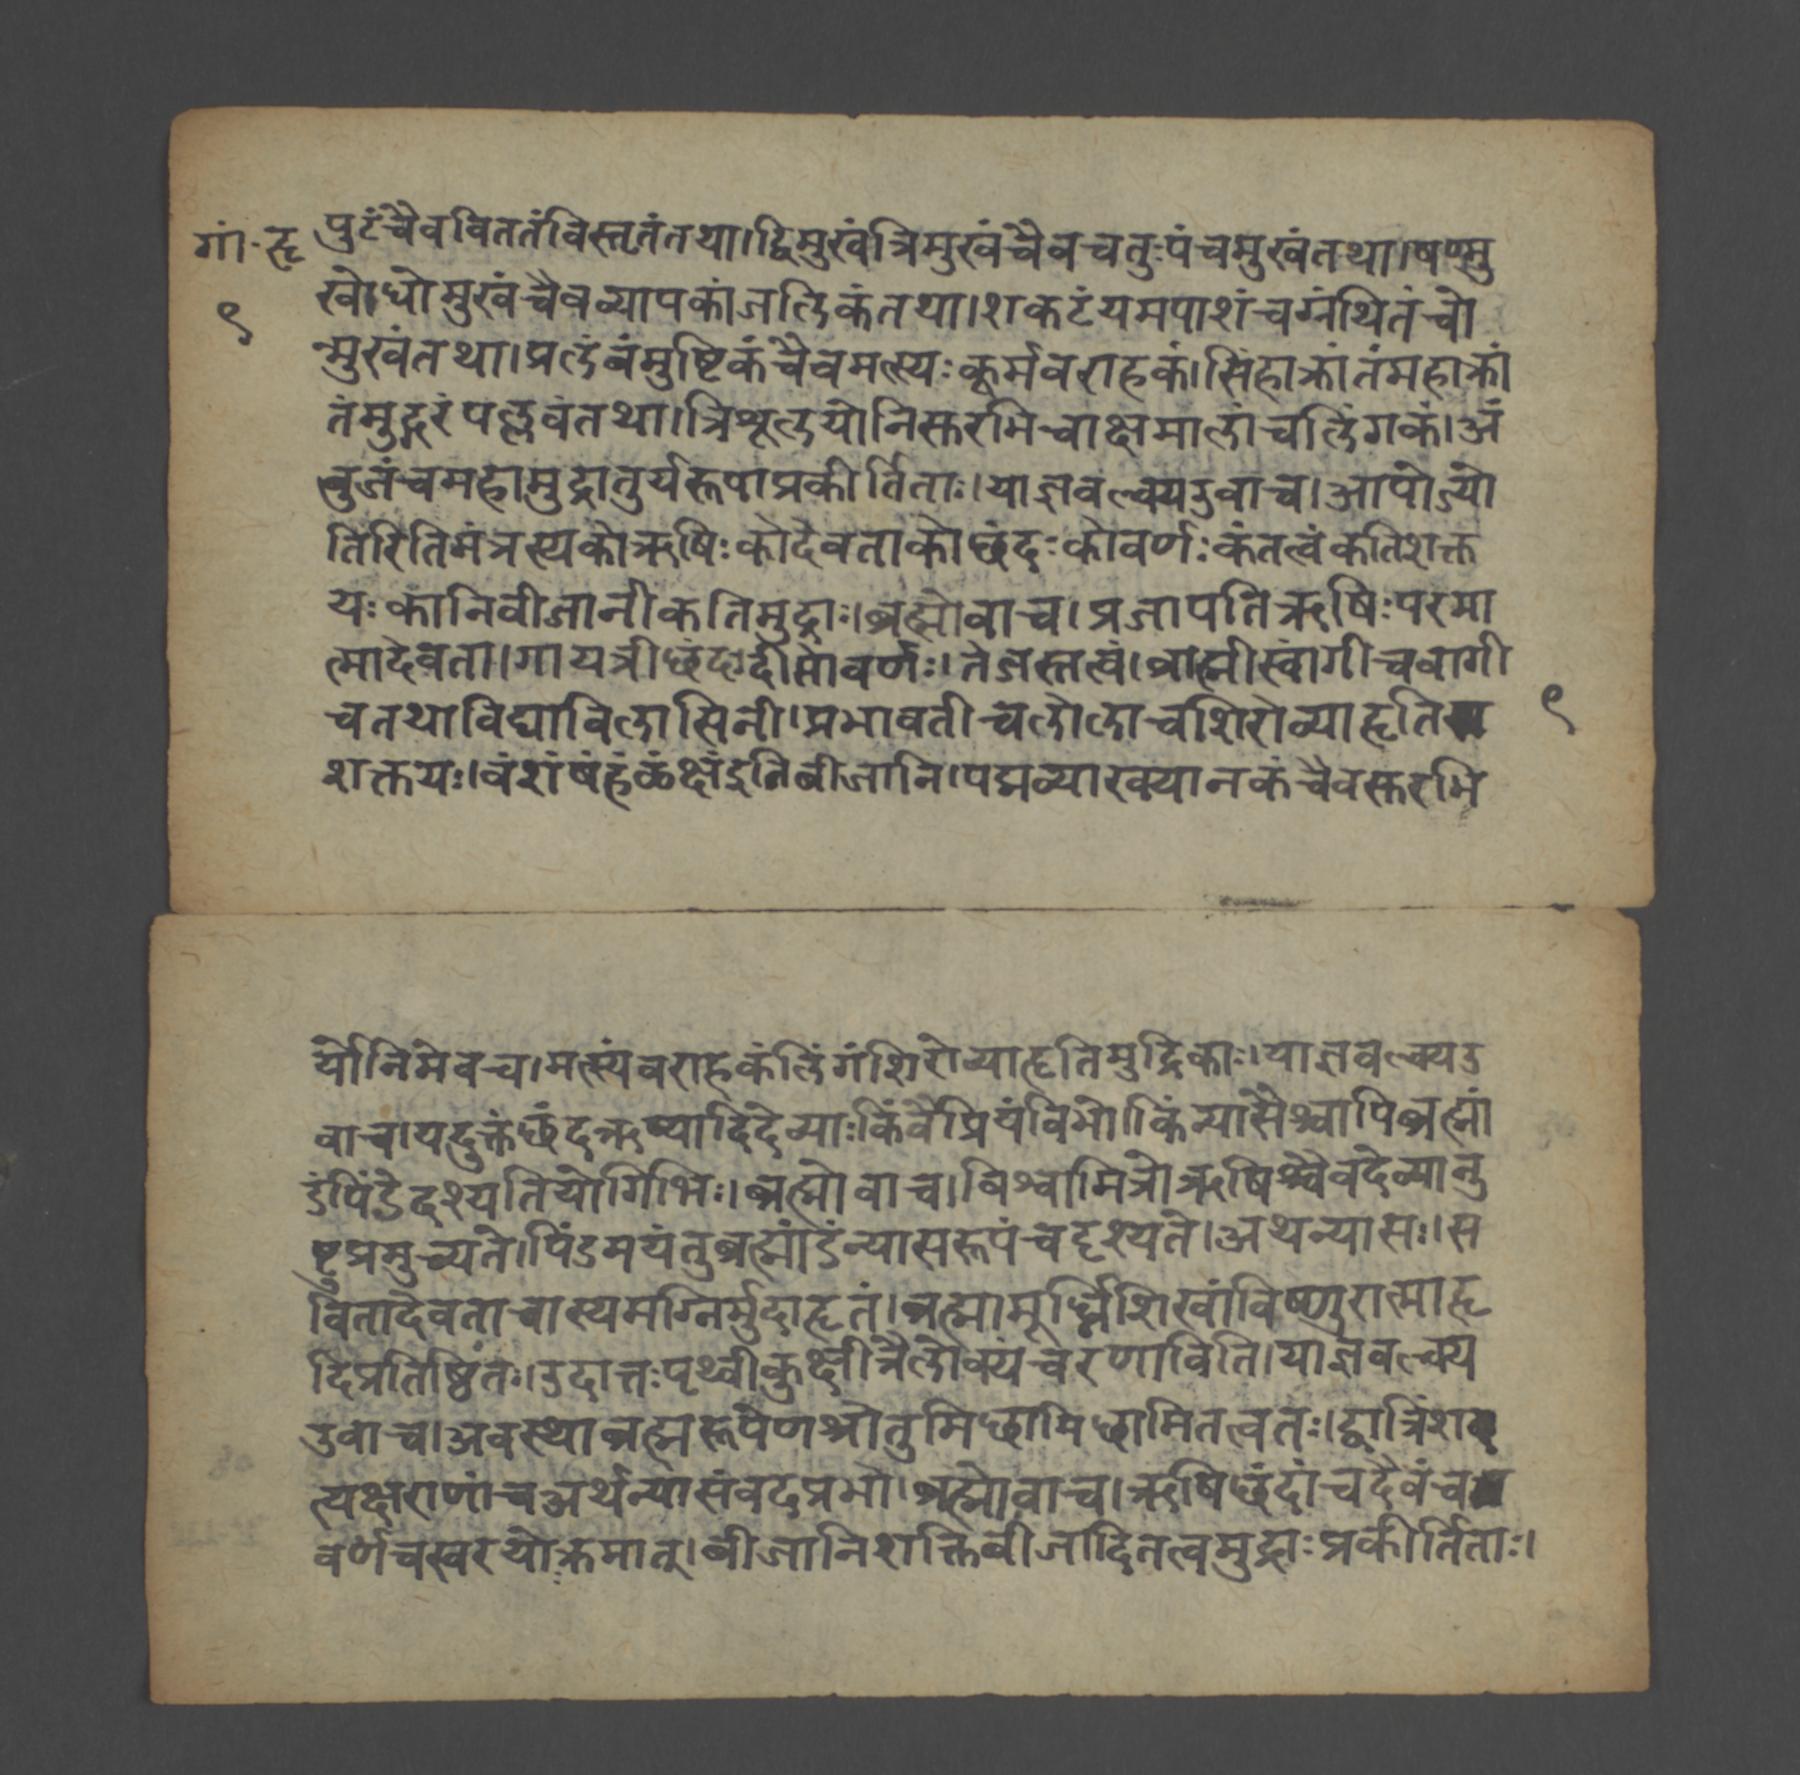 गां-हृ
९
पुटंचैवविततंविस्तृतंतथा।द्विमुखंत्रिमुखंचैवचतुःपंचमुखंतथा।षण्मु
खोधोमुखंचैवव्यापकांजलिकंतथा।शकटंयमपाशंचग्रंथितंचो
न्मुखंतथा।प्रलंबंमुष्टिकंचैवमत्स्यःकूर्मवराहकं।सिंहाक्रांतंमहाक्रां
तंमुद्गरंपल्लवंतथा।त्रिशूलयोनिसुरभिचाक्षमालांचलिंगकं।अं
बुजंचमहामुद्रातुर्यरूपाप्रकीर्तिताः।याज्ञवल्क्यउवाच।आपोज्यो
तिरितिमंत्रस्यकोऋषिःकोदेवताकोछंदःकोवर्णःकंतत्वंकतिशक्त
यःकानिबीजानीकतिमुद्राः।ब्रह्मोवाच।प्रजापतिऋषिःपरमा
त्मादेवता।गायत्रीछंदःदीप्तोवर्णः।तेजस्तत्वं।ब्राह्मीस्वांगीचवागी
चतथाविद्याविलासिनी।प्रभावतीचलोलाचशिरोव्याहृति
शक्तयः।वंशंषंहंळंक्षंइतिबीजानि।पद्मव्याख्यानकंचैवसुरभि
९
र्योनिमेवच।मत्स्यंवराहकंलिंगंशिरोव्याहृतिमुद्रिकाः।याज्ञवल्क्यउ
वाच।यदुक्तंछंदऋष्यादिदेव्याःकिंवैप्रियंविभो।किंन्यासैश्चापिब्रह्मां
डंपिंडेदृश्यतियोगिभिः।ब्रह्मोवाच।विश्वामित्रोऋषिश्चैवदेव्यानु
ष्टुप्रमुच्यते।पिंडमयंतुब्रह्मांडंन्यासरूपंचदृश्यते।अथन्यासः।स
वितादेवताचास्यमग्निर्मुदाहृतं।ब्रह्मामूर्ध्निशिखांविष्णुरात्माहृ
दिप्रतिष्ठितः।उदात्तःपृथ्वीकुक्षीत्रैलोक्यंचरणाविति।याज्ञवल्क्य
उवाच।अवस्थाब्रह्मरूपेणश्रोतुमिछामिछामितत्वतः।द्वात्रिंश
त्यक्षराणांचअर्थन्यासंवदप्रभो।ब्रह्मोवाच।ऋषिछंदांचदैवंच
वर्णचस्वरयोक्रमात्।बीजानिशक्तिबीजादितत्वमुद्राःप्रकीर्तिताः।